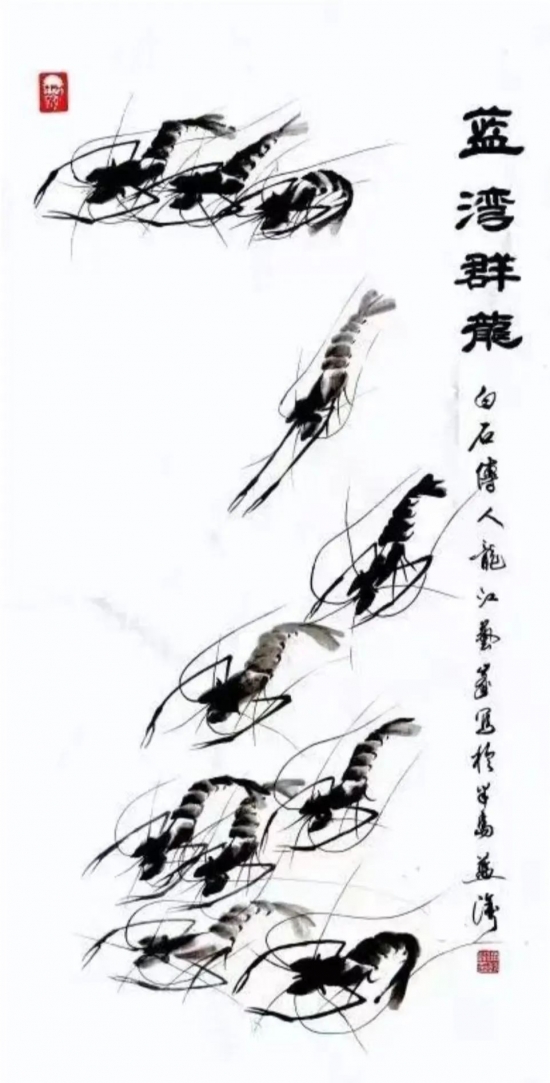 蓝湾群龍
白石傳人龍江藝峯写於半島蓝湾